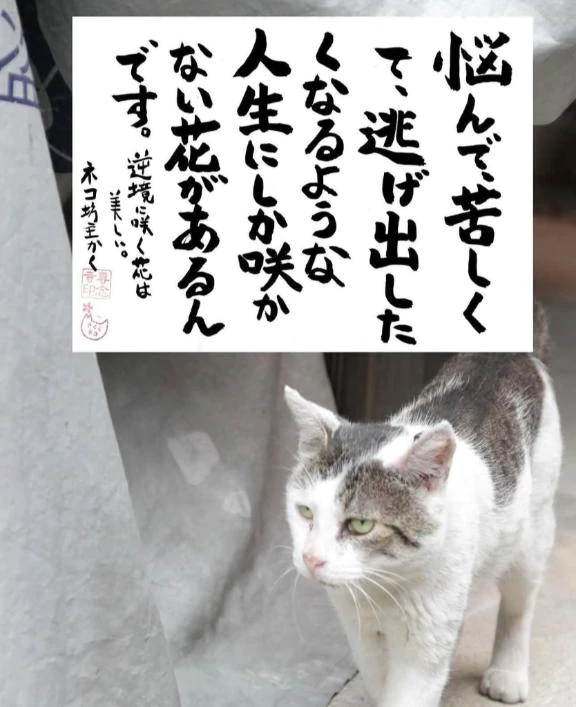 悩んで、苦しく
て、逃げ出した
くなるような
人生にしか咲か
ない花があるん
です。
逆境に咲く花は
美しい。
ネコ坊主かく